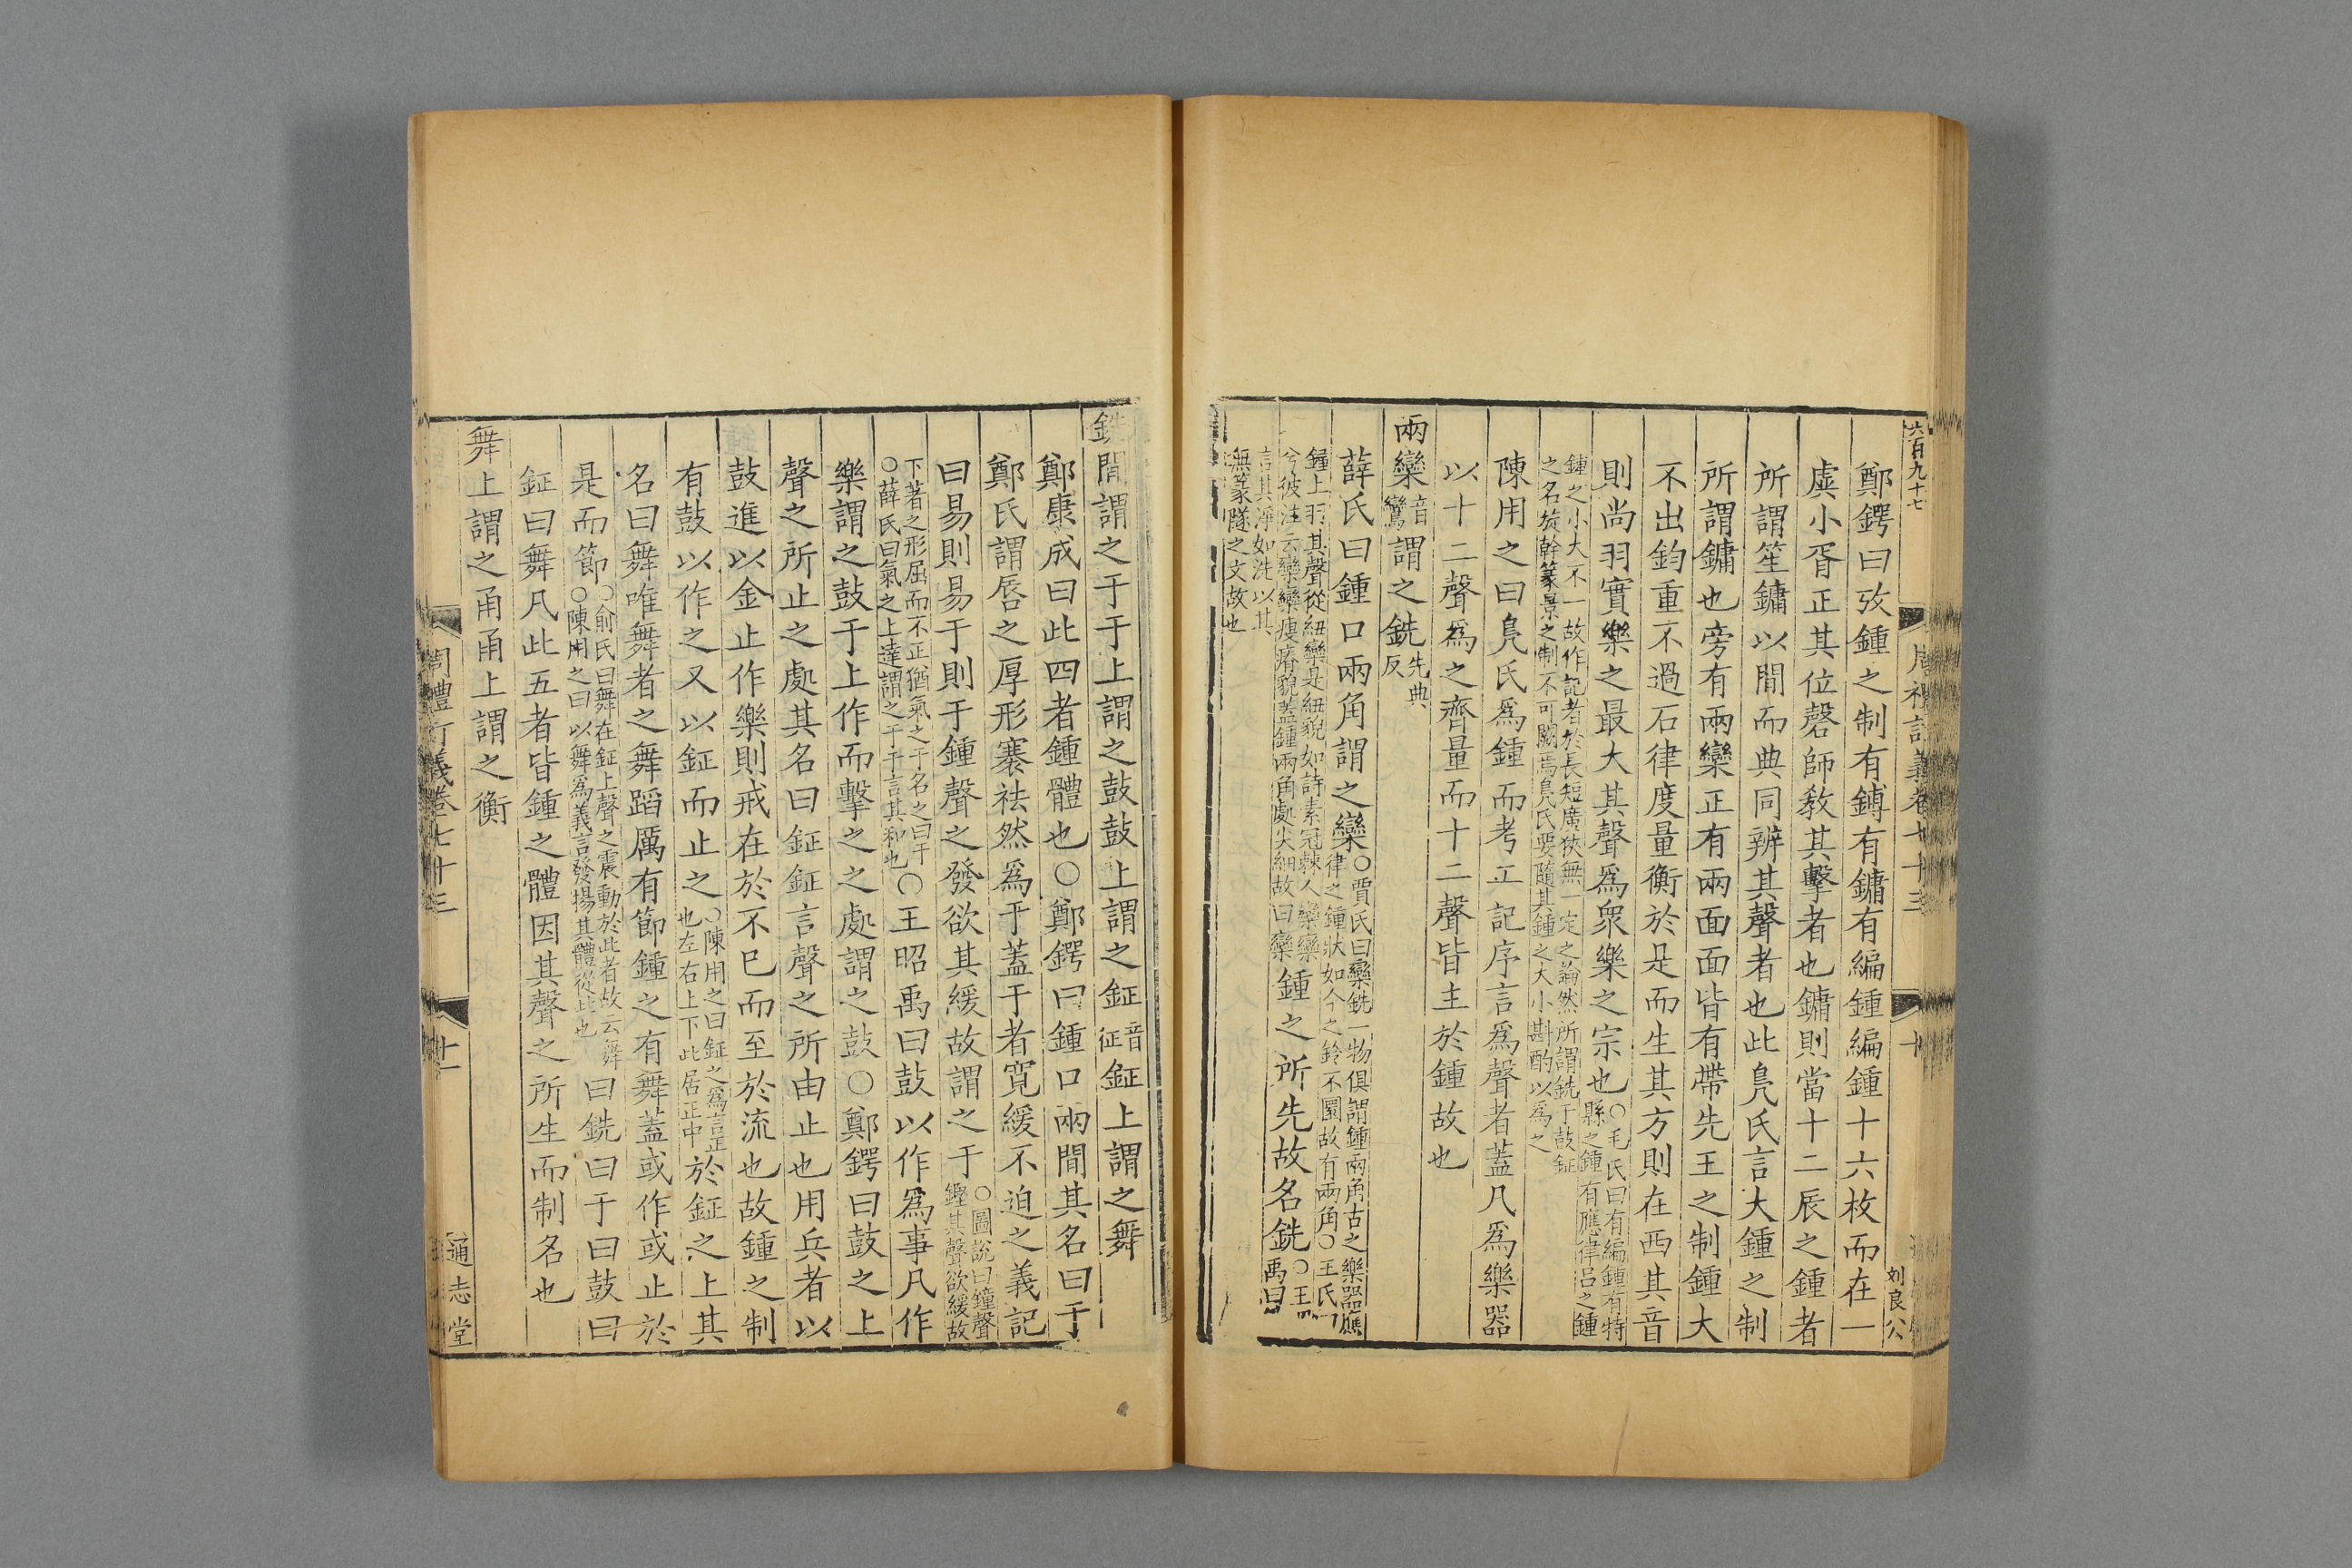 六百九十七
鄭鍔曰攷鍾之制有鎛有鏞有編鍾編鍾十六枚而在一
虡小胥正其位磬師敎其擊者也鏞則當十二辰之鍾者
所謂笙鏞以閒而典同辨其聲者也此鳧氏言大鍾之制
所謂鏞也旁有兩欒正有兩面面皆有帶先王之制鍾大
不出鈞重不過石律度量衡於是而生其方則在西其音
則尚羽實樂之最大其聲爲衆樂之宗也○毛氏曰有編鍾有特
縣之鍾有應律呂之鍾
鍾之小大不一故作記者於長短廣狹無一定之論然所謂銑于鼓鉦
之名旋幹篆景之制不可闕焉鳧氏要隨其鍾之大小斟酌以爲之
陳用之曰鳧氏爲鍾而考工記序言爲聲者蓋凡爲樂器
以十二聲爲之齊量而十二聲皆主於鍾故也
兩欒音鸞謂之銑先典反
薛氏曰鍾口兩角謂之欒○賈氏曰欒銑一物俱謂鍾兩角古之樂器應
律之鍾狀如今之鈴不圜故有兩角○王氏曰
鍾上羽其聲從紐欒是紐貌如詩素冠棘人欒欒
兮彼注云欒欒瘦瘠貌蓋鍾兩角處尖細故曰欒鍾之所先故名銑○王
禹曰
言其淨如洗以其
無篆隧之文故也
周禮訂義卷七十三
十
刘良公
銑閒謂之于于上謂之鼓鼓上謂之鉦音征鉦上謂之舞
鄭康成曰此四者鍾體也○鄭鍔曰鍾口兩閒其名曰于
鄭氏謂唇之厚形褰祛然爲于蓋于者寬緩不迫之義記
曰易則易于則于鍾聲之發欲其緩故謂之于○圖說曰鐘聲
鏗其聲欲緩故
下著之形屈而不正猶氣之于名之曰于
○薛氏曰氣之上達謂之于于言其和也○王昭禹曰鼓以作爲事凡作
樂謂之鼓于上作而擊之之處謂之鼓○鄭鍔曰鼓之上
聲之所止之處其名曰鉦鉦言聲之所由止也用兵者以
鼓進以金止作樂則戒在於不巳而至於流也故鍾之制
有鼓以作之又以鉦而止之○陳用之曰鉦之爲言正
也左右上下此居正中於鉦之上其
名曰舞唯舞者之舞蹈厲有節鍾之有舞蓋或作或止於
是而節○俞氏曰舞在鉦上聲之震動於此者故云舞
○陳用之曰以舞爲義言發揚其體從此也曰銑曰于曰鼓曰
鉦曰舞凡此五者皆鍾之體因其聲之所生而制名也
舞上謂之甬甬上謂之衡
周禮訂義卷七十三
十一
通志堂